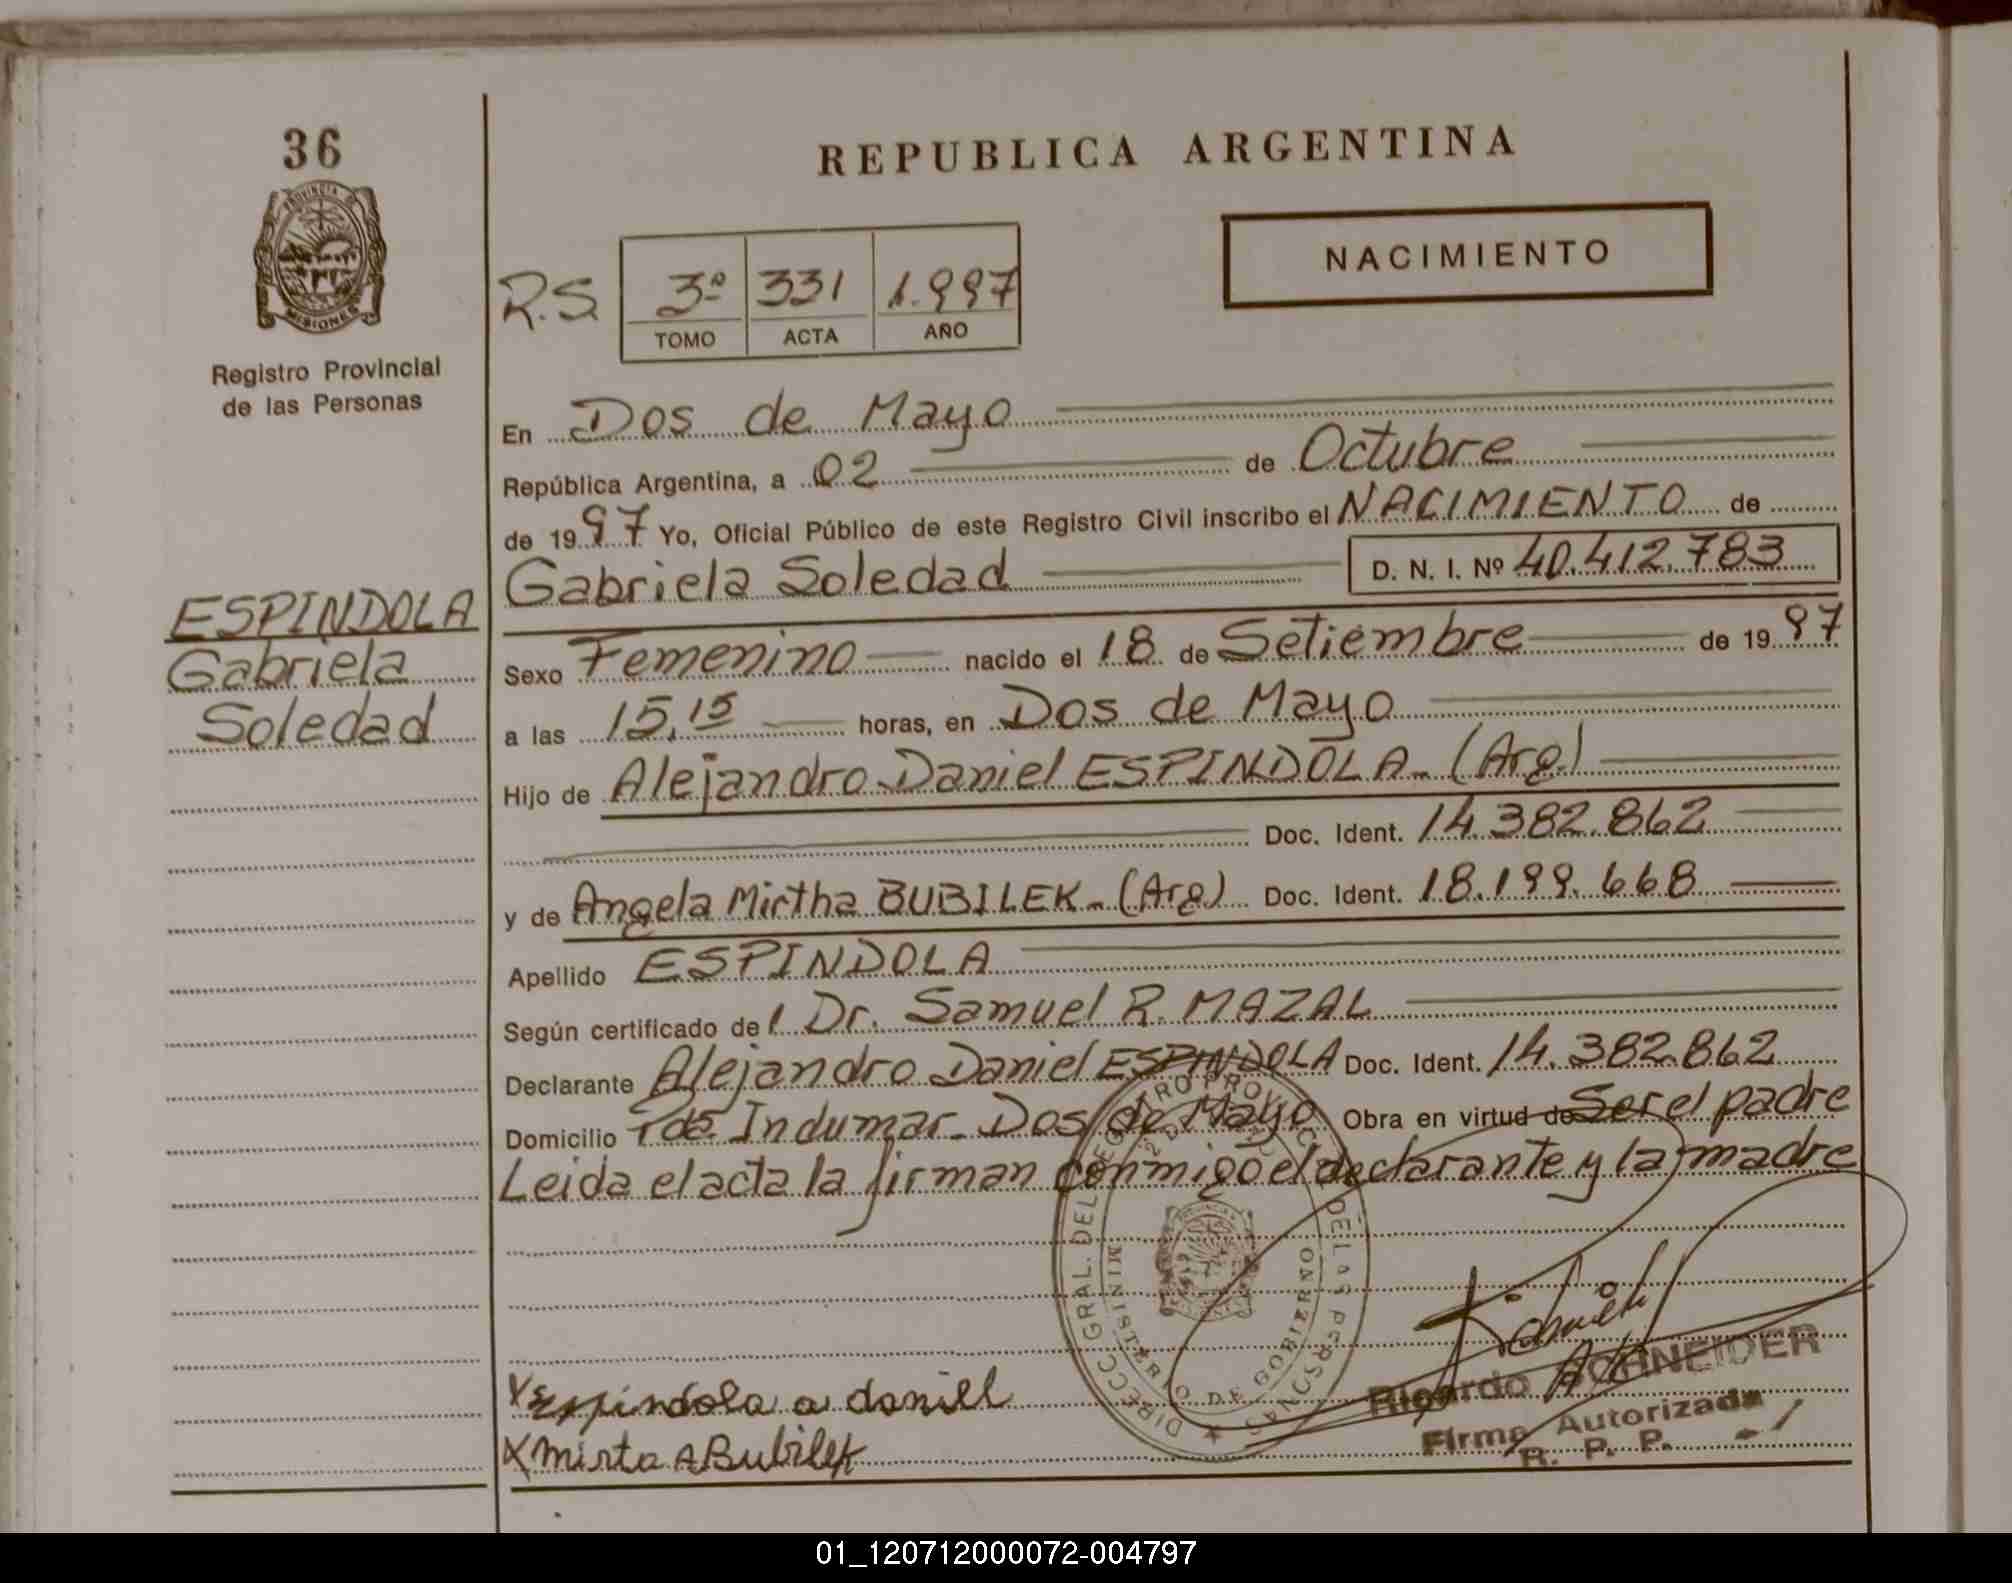 36
PROVINCIA DE
MISIONES
Registro Provincial
de las Personas
ESPINDOLA
Gabriela
Soledad
REPUBLICA ARGENTINA
NACIMIENTO
R.S. 3º 331 1.997
TOMO ACTA AÑO
En Dos de Mayo
República Argentina, a 02 de Octubre
de 1997 Yo, Oficial Público de este Registro Civil inscribo el NACIMIENTO de
Gabriela Soledad D. N. I. Nº 40.412.783
Sexo Femenino nacido el 18 de Setiembre de 1997
a las 15,15 horas, en Dos de Mayo
Hijo de Alejandro Daniel ESPINDOLA - (Arg.)
Doc. Ident. 14.382.862
y de Angela Mirtha BUBILEK - (Arg.) Doc. Ident. 18.199.668
Apellido ESPINDOLA
Según certificado del Dr. Samuel R. MAZAL
Declarante Alejandro Daniel ESPINDOLA Doc. Ident. 14.382.862
Domicilio Tda. Indumar - Dos de Mayo Obra en virtud de Ser el padre
Leida el acta la firman conmigo el declarante y la madre
DIRECC GRAL. DEL REGISTRO PROVINCIAL DE LAS PERSONAS
MINISTERIO DE GOBIERNO
X Espindola a daniel
X Mirta A Bubilek
Ricardo SCHNEIDER
Firma Autorizada
R. P. P.
01_120712000072-004797